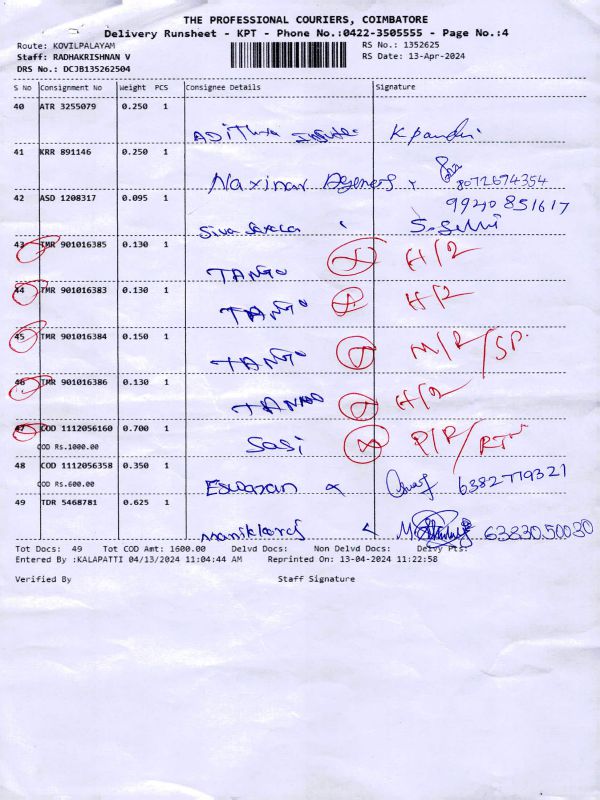 THE PROFESSIONAL COURIERS, COIMBATORE
Delivery Runsheet - KPT - Phone No.:0422-3505555 - Page No.:4
Route: KOVILPALAYAM RS No.: 1352625
Staff: RADHAKRISHNAN V RS Date: 13-Apr-2024
DRS No.: DCJB135262504
S No Consignment No Weight PCS Consignee Details Signature
40 ATR 3255079 0.250 1
Adithya K Pandi
41 KRR 891146 0.250 1
8072674354
42 ASD 1208317 0.095 1 9940851617
Siva S. Selvi
43 TMR 901016385 0.130 1 H/R
TANGO
44 TMR 901016383 0.130 1 H/R
TANGO
45 TMR 901016384 0.150 1 M/R/SP.
TANGO
46 TMR 901016386 0.130 1 H/R
TANGO
47 COD 1112056160 0.700 1 P/R/RTN
COD Rs.1000.00 Sasi
48 COD 1112056358 0.350 1
COD Rs.600.00 Eswaran 6382779321
49 TDR 5468781 0.625 1
6383050030
Tot Docs: 49 Tot COD Amt: 1600.00 Delvd Docs: Non Delvd Docs: Delvy Pts:
Entered By :KALAPATTI 04/13/2024 11:04:44 AM Reprinted On: 13-04-2024 11:22:58
Verified By Staff Signature